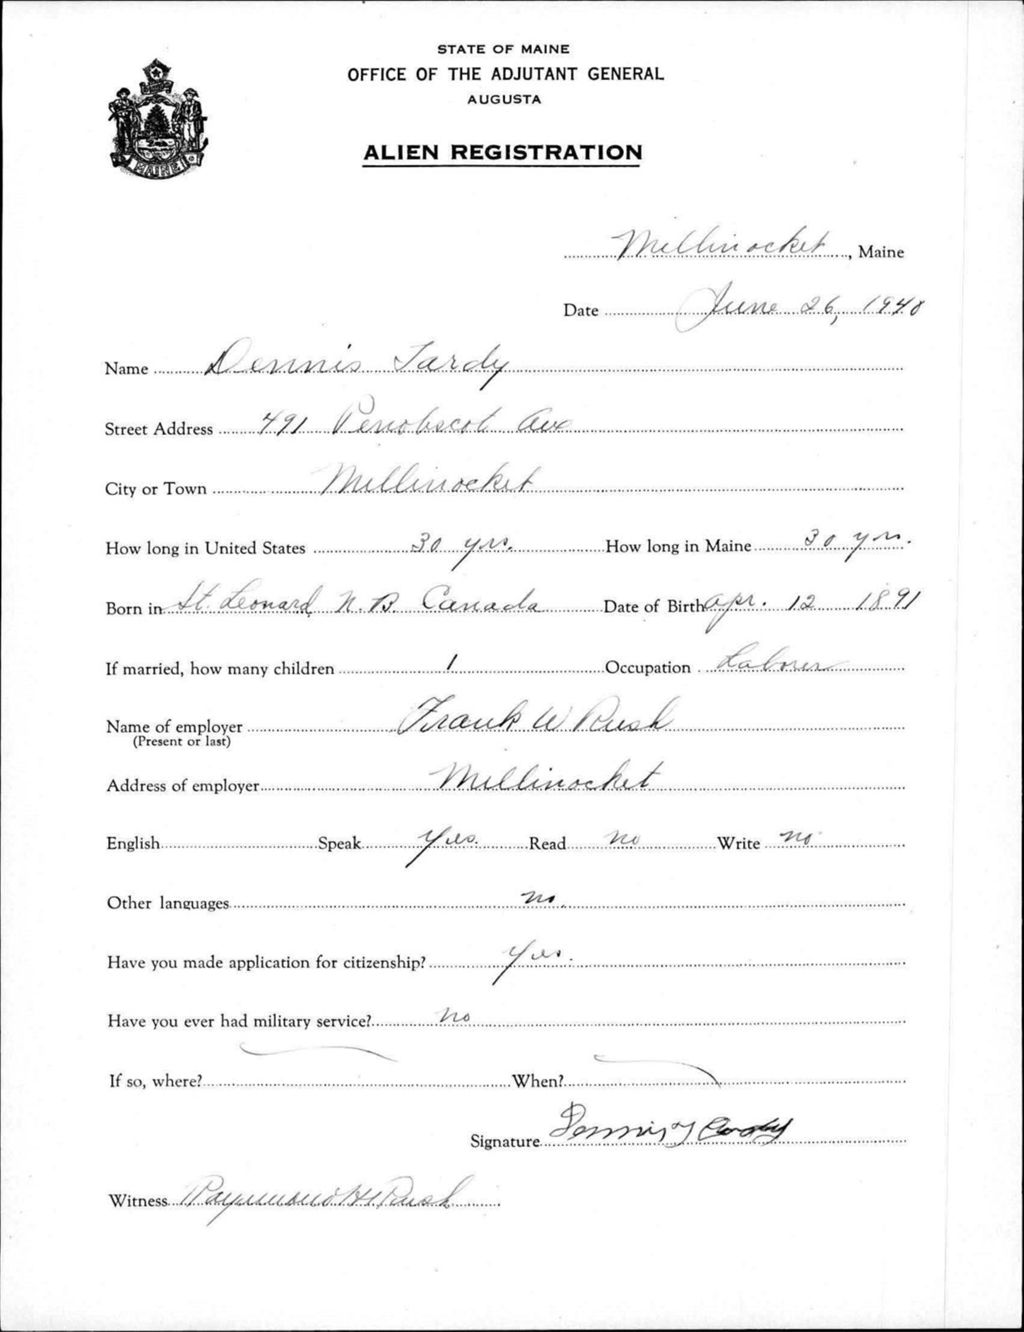 STATE OF MAINE
OFFICE OF THE ADJUTANT GENERAL
AUGUSTA
ALIEN REGISTRATION
MAINE
Millinocket, Maine
Date June 26, 1940
Name Dennis Tardy
Street Address 491 Penobscot Ave
City or Town Millinocket
How long in United States 30 yrs. How long in Maine 30 yrs.
Born in St. Leonard, N. B. Canada Date of Birth Apr. 12 1891
If married, how many children 1 Occupation Laborer
Name of employer Frank W Rush
(Present or last)
Address of employer Millinocket
English Speak Yes. Read no Write no
Other languages no.
Have you made application for citizenship? Yes.
Have you ever had military service? no
If so, where? When?
Signature Dennis
Witness Raymond H Rush